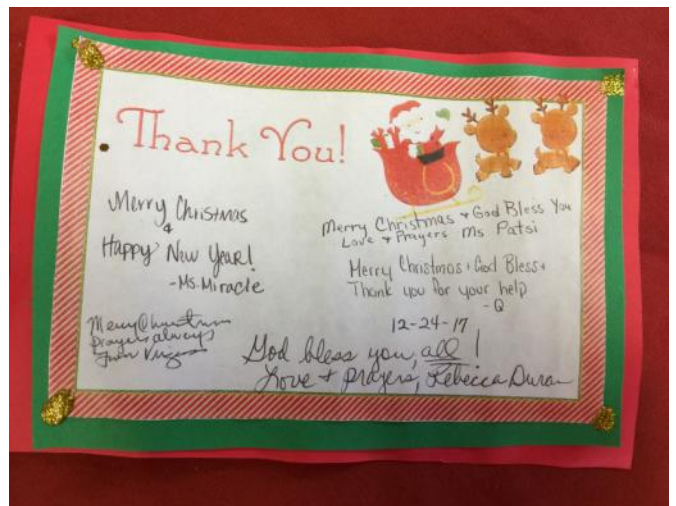 Thank You!
Merry Christmas
&
Happy New Year!
-Ms. Miracle
Merry Christmas + God Bless You
Love + Prayers Ms Patsi
Merry Christmas + God Bless +
Thank you for your help
- Q
12-24-17
Merry Christmas
prayers always
God bless you, all!
Love + prayers, Rebecca Duran